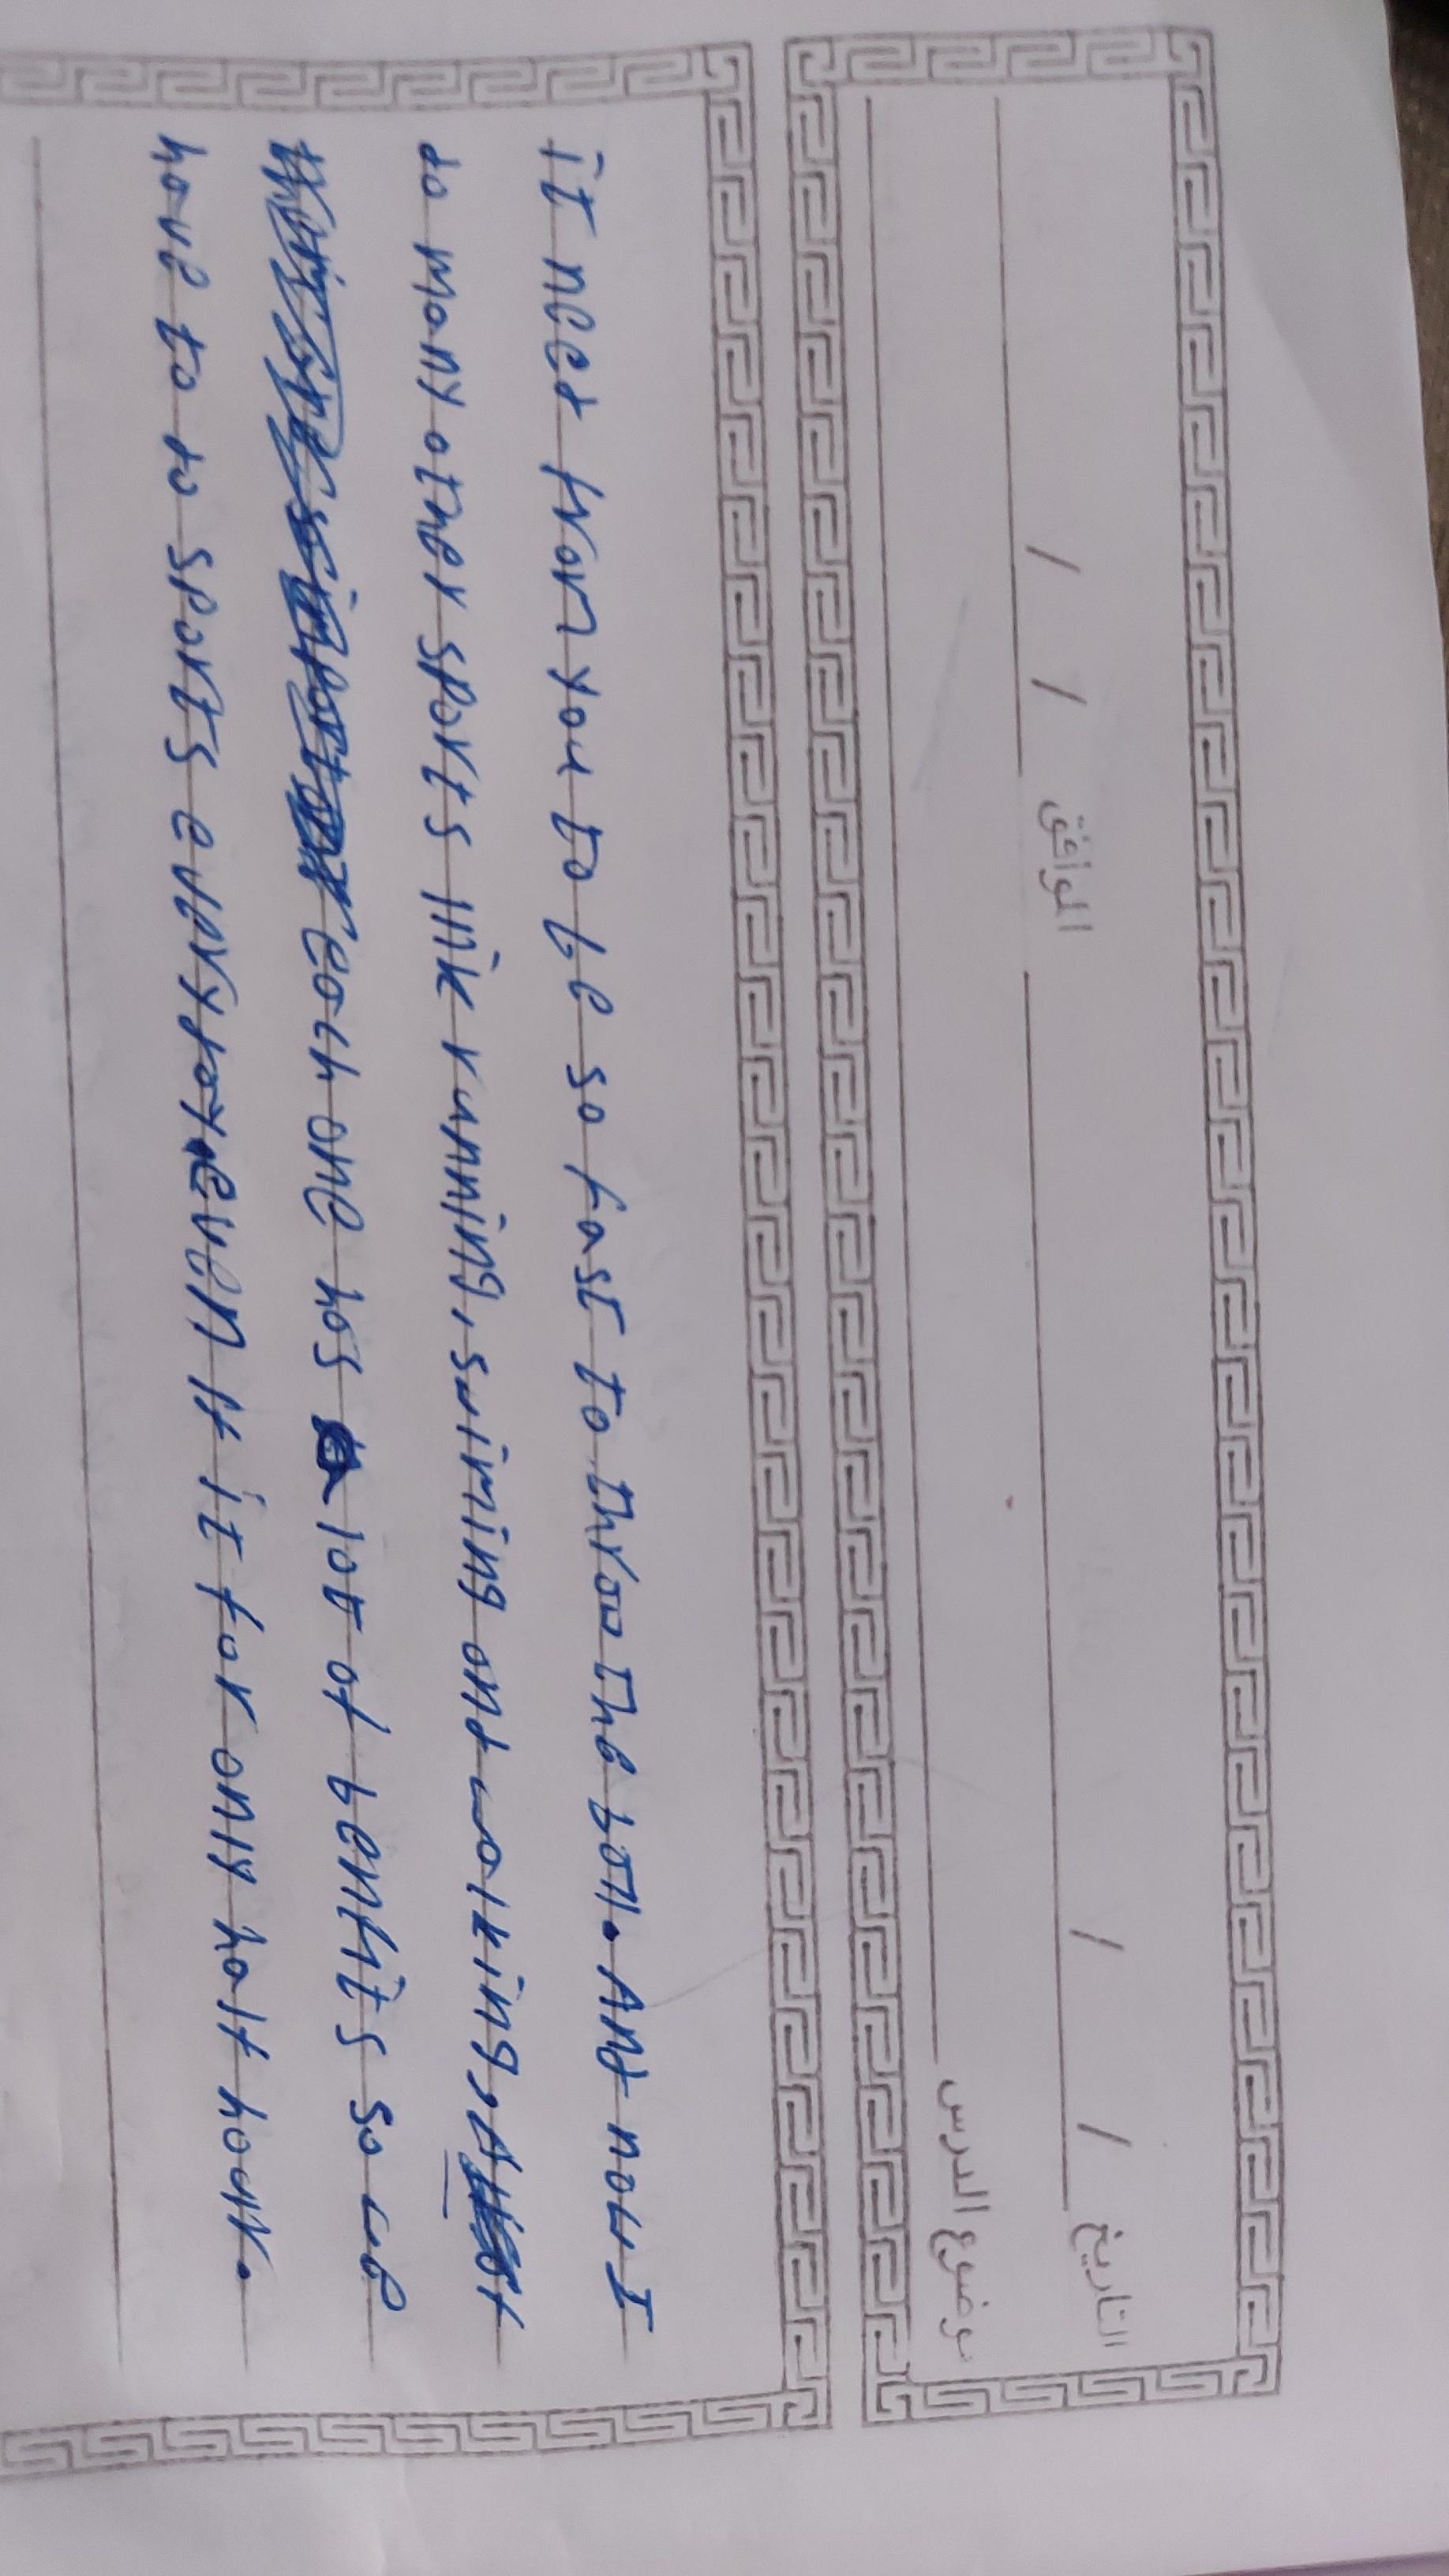 التاريخ / / الموافق / /
موضوع الدرس
it need from you to be so fast to throw the ball. And now I
do many other sports like running, swiming and walking,
each one has a lot of benfits so we
have to do sports everyday. even if it for only half hour.